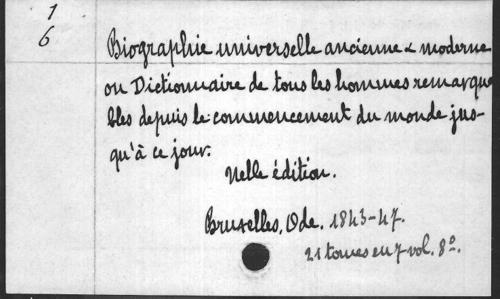 1
6
Biographie universelle ancienne & moderne
ou Dictionnaire de tous les hommes remarqua
bles depuis le commencement du monde jus-
qu'à ce jour.
Nelle édition.
Bruxelles, Ode. 1843-47.
21 tomes en 7 vol. 8º.